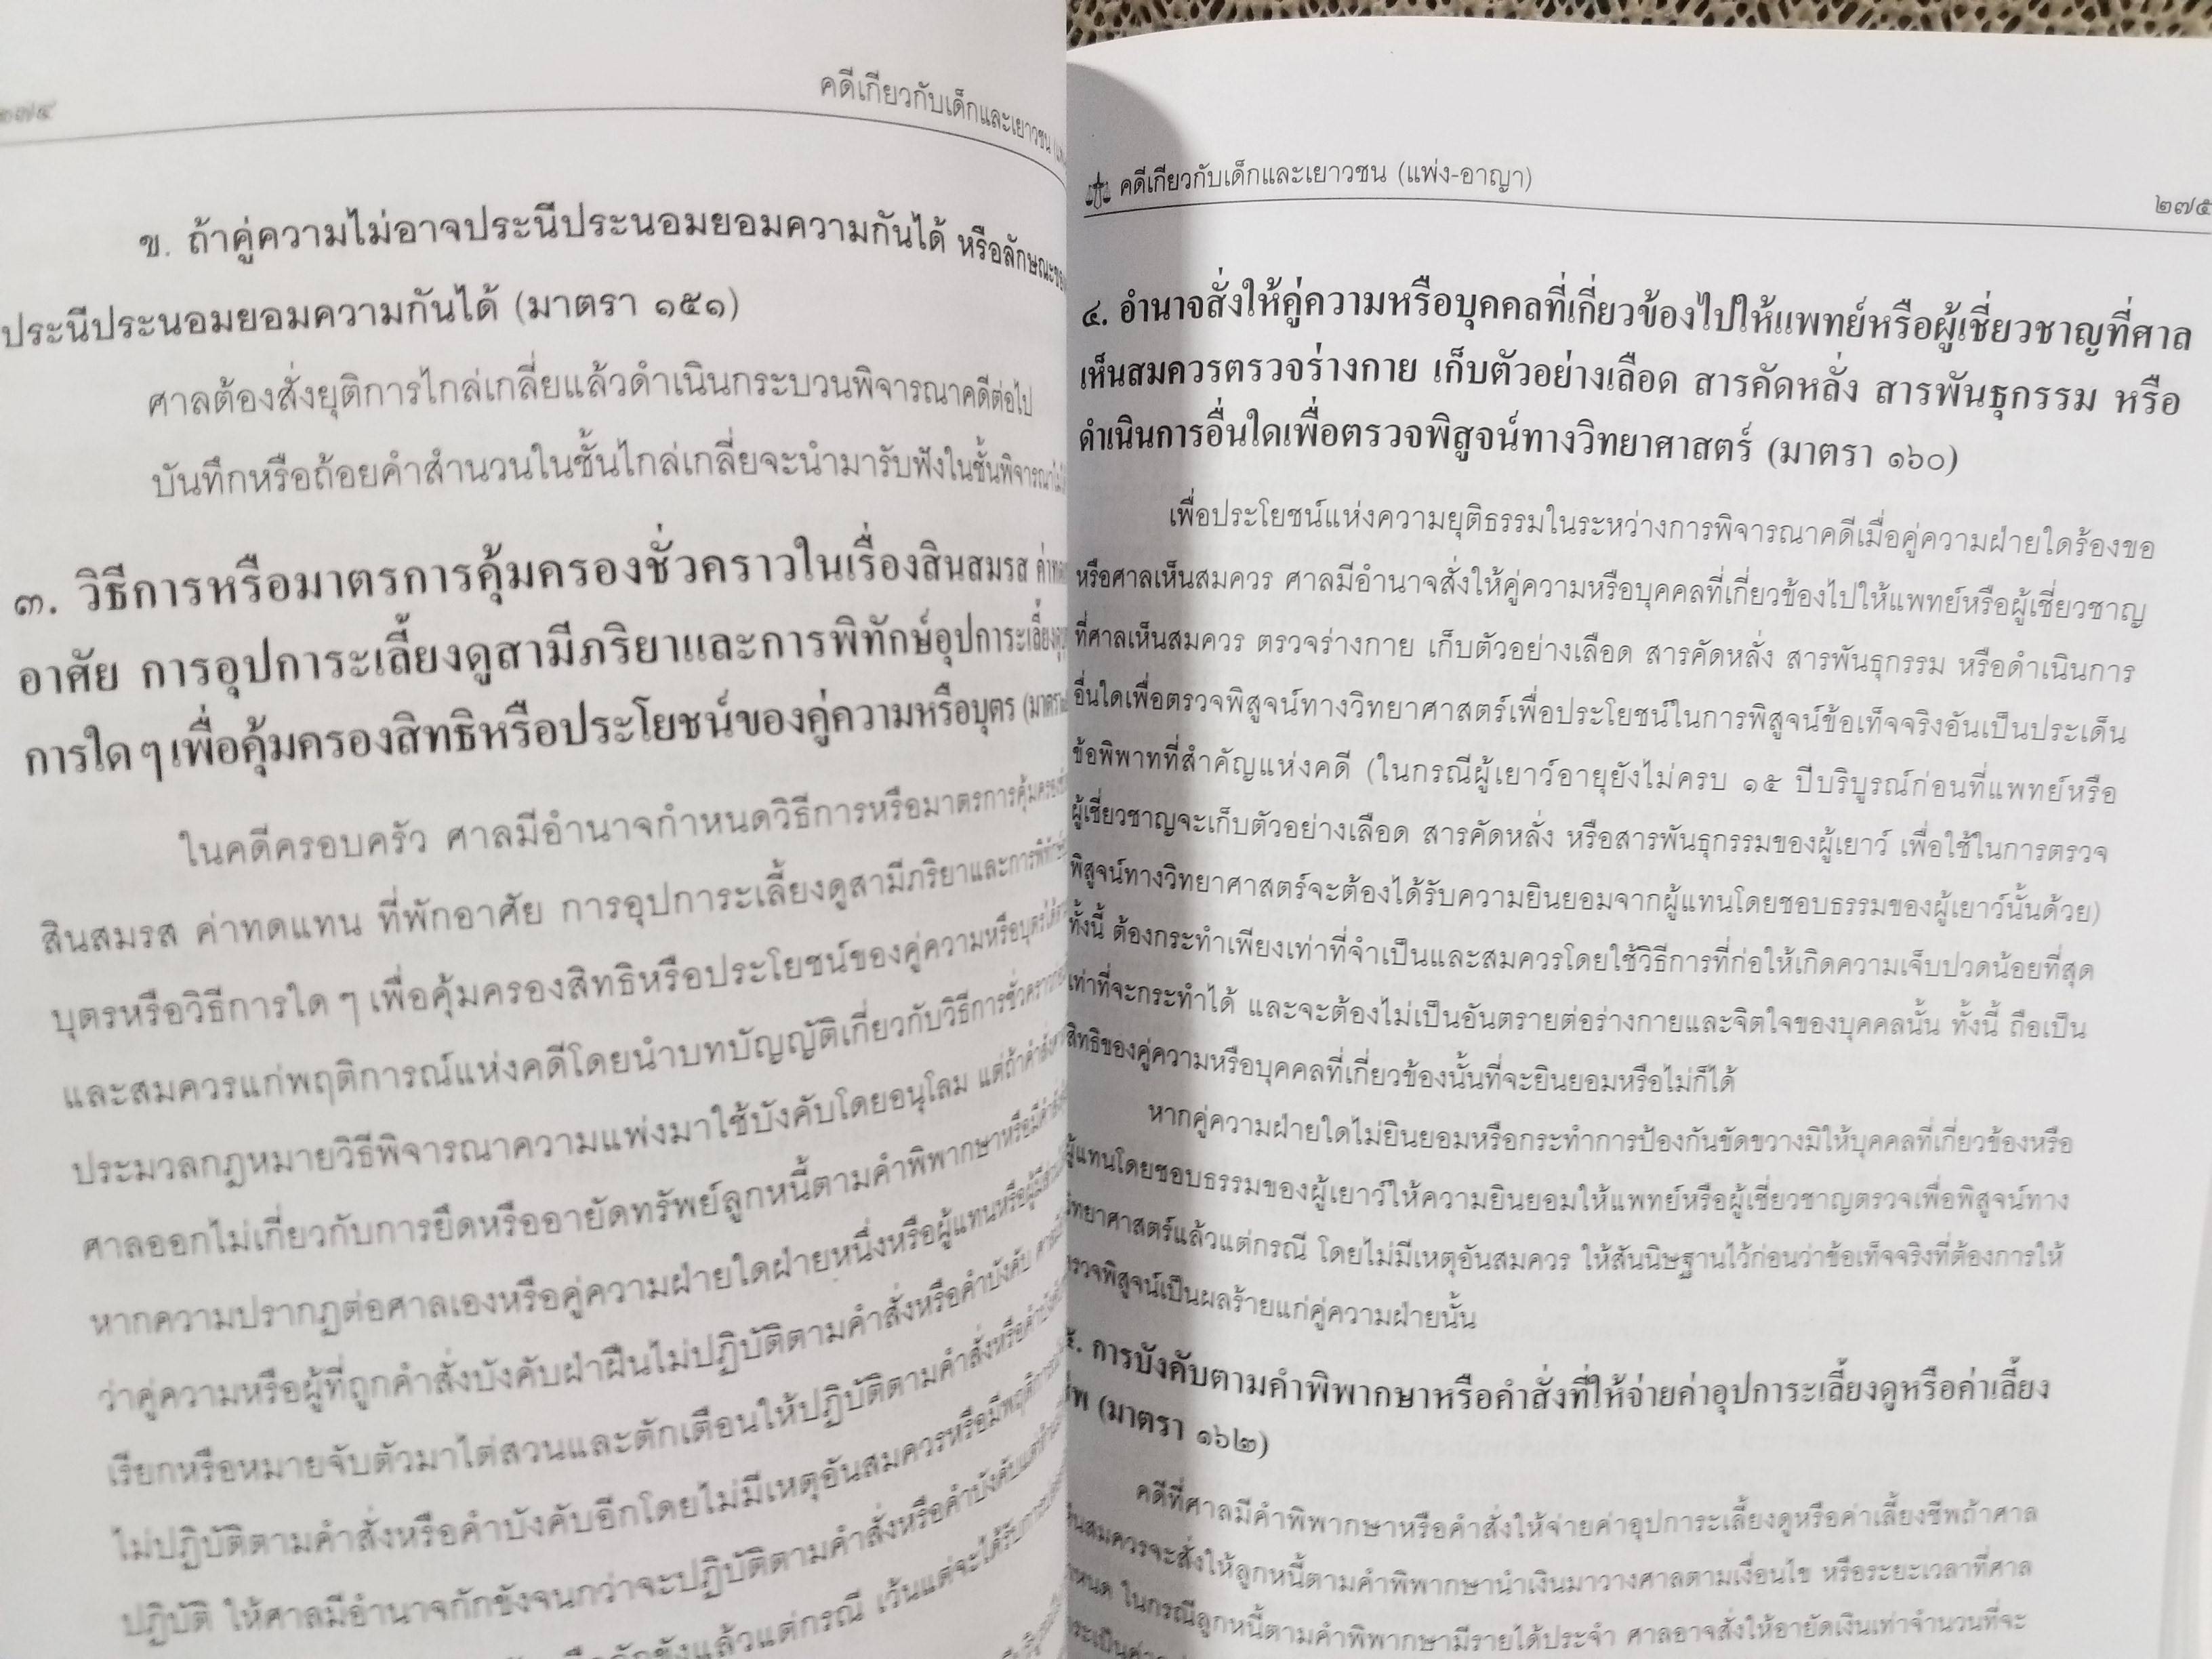 ๒๗๔
คดีเกี่ยวกับเด็กและเยาวชน
ข. ถ้าคู่ความไม่อาจประนีประนอมยอมความกันได้ หรือลักษณะ
ประนีประนอมยอมความกันได้ (มาตรา ๑๕๑)
ศาลต้องสั่งยุติการไกล่เกลี่ยแล้วดำเนินกระบวนพิจารณาคดีต่อไป
บันทึกหรือถ้อยคำสำนวนในชั้นไกล่เกลี่ยจะนำมารับฟังในชั้นพิจารณา
๓. วิธีการหรือมาตรการคุ้มครองชั่วคราวในเรื่องสินสมรส
อาศัย การอุปการะเลี้ยงดูสามีภริยาและการพิทักษ์อุปการะเลี้ยงดู
การใด ๆ เพื่อคุ้มครองสิทธิหรือประโยชน์ของคู่ความหรือบุตร
ในคดีครอบครัว ศาลมีอำนาจกำหนดวิธีการหรือมาตรการคุ้มครอง
สินสมรส ค่าทดแทน ที่พักอาศัย การอุปการะเลี้ยงดูสามีภริยาและการพิทักษ์
บุตรหรือวิธีการใด ๆ เพื่อคุ้มครองสิทธิหรือประโยชน์ของคู่ความหรือบุตร
และสมควรแก่พฤติการณ์แห่งคดีโดยนำบทบัญญัติเกี่ยวกับวิธีการชั่วคราว
ประมวลกฎหมายวิธีพิจารณาความแพ่งมาใช้บังคับโดยอนุโลม แต่ถ้าคำสั่ง
ศาลออกไม่เกี่ยวกับการยึดหรืออายัดทรัพย์ลูกหนี้ตามคำพิพากษาหรือมีคำสั่ง
หากความปรากฏต่อศาลเองหรือคู่ความฝ่ายใดฝ่ายหนึ่งหรือผู้แทนหรือผู้มี
ว่าคู่ความหรือผู้ที่ถูกคำสั่งบังคับฝ่าฝืนไม่ปฏิบัติตามคำสั่งหรือคำบังคับ
เรียกหรือหมายจับตัวมาไต่สวนและตักเตือนให้ปฏิบัติตามคำสั่งหรือคำบังคับ
ไม่ปฏิบัติตามคำสั่งหรือคำบังคับอีกโดยไม่มีเหตุอันสมควรหรือมีพฤติการณ์
ปฏิบัติ ให้ศาลมีอำนาจกักขังจนกว่าจะปฏิบัติตามคำสั่งหรือคำบังคับ
กักขังแล้วแต่กรณี เว้นแต่จะได้รับการ
คดีเกี่ยวกับเด็กและเยาวชน (แพ่ง-อาญา)
๒๗๕
๔. อำนาจสั่งให้คู่ความหรือบุคคลที่เกี่ยวข้องไปให้แพทย์หรือผู้เชี่ยวชาญที่ศาล
เห็นสมควรตรวจร่างกาย เก็บตัวอย่างเลือด สารคัดหลั่ง สารพันธุกรรม หรือ
ดำเนินการอื่นใดเพื่อตรวจพิสูจน์ทางวิทยาศาสตร์ (มาตรา ๑๖๐)
เพื่อประโยชน์แห่งความยุติธรรมในระหว่างการพิจารณาคดีเมื่อคู่ความฝ่ายใดร้องขอ
หรือศาลเห็นสมควร ศาลมีอำนาจสั่งให้คู่ความหรือบุคคลที่เกี่ยวข้องไปให้แพทย์หรือผู้เชี่ยวชาญ
ที่ศาลเห็นสมควร ตรวจร่างกาย เก็บตัวอย่างเลือด สารคัดหลั่ง สารพันธุกรรม หรือดำเนินการ
อื่นใดเพื่อตรวจพิสูจน์ทางวิทยาศาสตร์เพื่อประโยชน์ในการพิสูจน์ข้อเท็จจริงอันเป็นประเด็น
ข้อพิพาทที่สำคัญแห่งคดี (ในกรณีผู้เยาว์อายุยังไม่ครบ ๑๕ ปีบริบูรณ์ก่อนที่แพทย์หรือ
ผู้เชี่ยวชาญจะเก็บตัวอย่างเลือด สารคัดหลั่ง หรือสารพันธุกรรมของผู้เยาว์ เพื่อใช้ในการตรวจ
พิสูจน์ทางวิทยาศาสตร์จะต้องได้รับความยินยอมจากผู้แทนโดยชอบธรรมของผู้เยาว์นั้นด้วย)
ทั้งนี้ ต้องกระทำเพียงเท่าที่จำเป็นและสมควรโดยใช้วิธีการที่ก่อให้เกิดความเจ็บปวดน้อยที่สุด
เท่าที่จะกระทำได้ และจะต้องไม่เป็นอันตรายต่อร่างกายและจิตใจของบุคคลนั้น ทั้งนี้ ถือเป็น
สิทธิของคู่ความหรือบุคคลที่เกี่ยวข้องนั้นที่จะยินยอมหรือไม่ก็ได้
หากคู่ความฝ่ายใดไม่ยินยอมหรือกระทำการป้องกันขัดขวางมิให้บุคคลที่เกี่ยวข้องหรือ
ผู้แทนโดยชอบธรรมของผู้เยาว์ให้ความยินยอมให้แพทย์หรือผู้เชี่ยวชาญตรวจเพื่อพิสูจน์ทาง
วิทยาศาสตร์แล้วแต่กรณี โดยไม่มีเหตุอันสมควร ให้สันนิษฐานไว้ก่อนว่าข้อเท็จจริงที่ต้องการให้
ตรวจพิสูจน์เป็นผลร้ายแก่คู่ความฝ่ายนั้น
๕. การบังคับตามคำพิพากษาหรือคำสั่งที่ให้จ่ายค่าอุปการะเลี้ยงดูหรือค่าเลี้ยง
ชีพ (มาตรา ๑๖๒)
คดีที่ศาลมีคำพิพากษาหรือคำสั่งให้จ่ายค่าอุปการะเลี้ยงดูหรือค่าเลี้ยงชีพถ้าศาล
เห็นสมควรจะสั่งให้ลูกหนี้ตามคำพิพากษานำเงินมาวางศาลตามเงื่อนไข หรือระยะเวลาที่ศาล
กำหนด ในกรณีลูกหนี้ตามคำพิพากษามีรายได้ประจำ ศาลอาจสั่งให้อายัดเงินเท่าจำนวนที่จะ